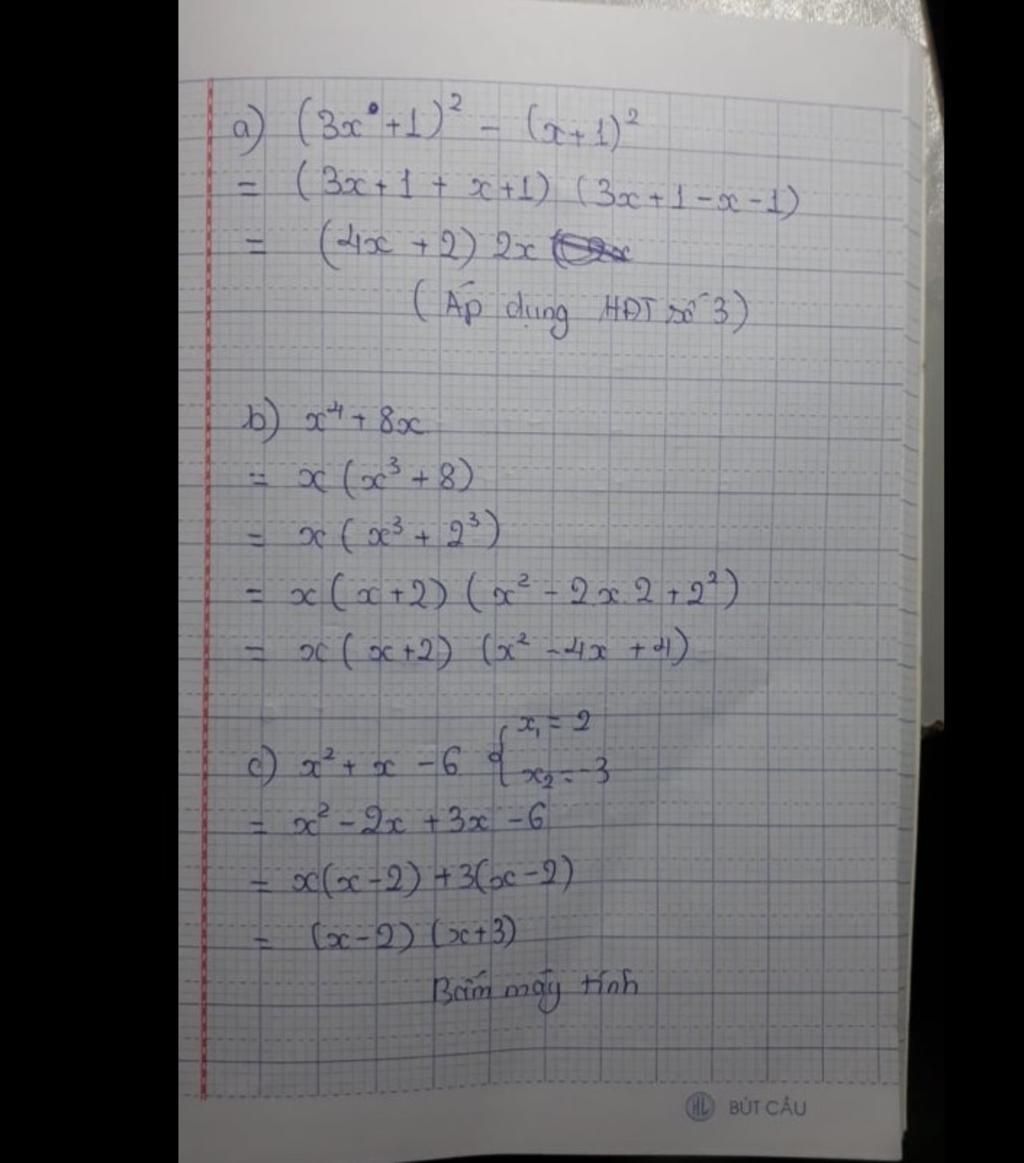 a) (3x+1)² - (x+1)²
= (3x+1+x+1) (3x+1-x-1)
= (4x+2) 2x
(Áp dụng HĐT số 3)
b) x⁴ + 8x
= x (x³ + 8)
= x (x³ + 2³)
= x (x+2) (x² - 2x.2 + 2²)
= x (x+2) (x² - 4x + 4)
c) x² + x - 6 { x₁ = 2
x₂ = -3
= x² - 2x + 3x - 6
= x(x-2) + 3(x-2)
= (x-2) (x+3)
Bấm máy tính
HL BÚT CÂU